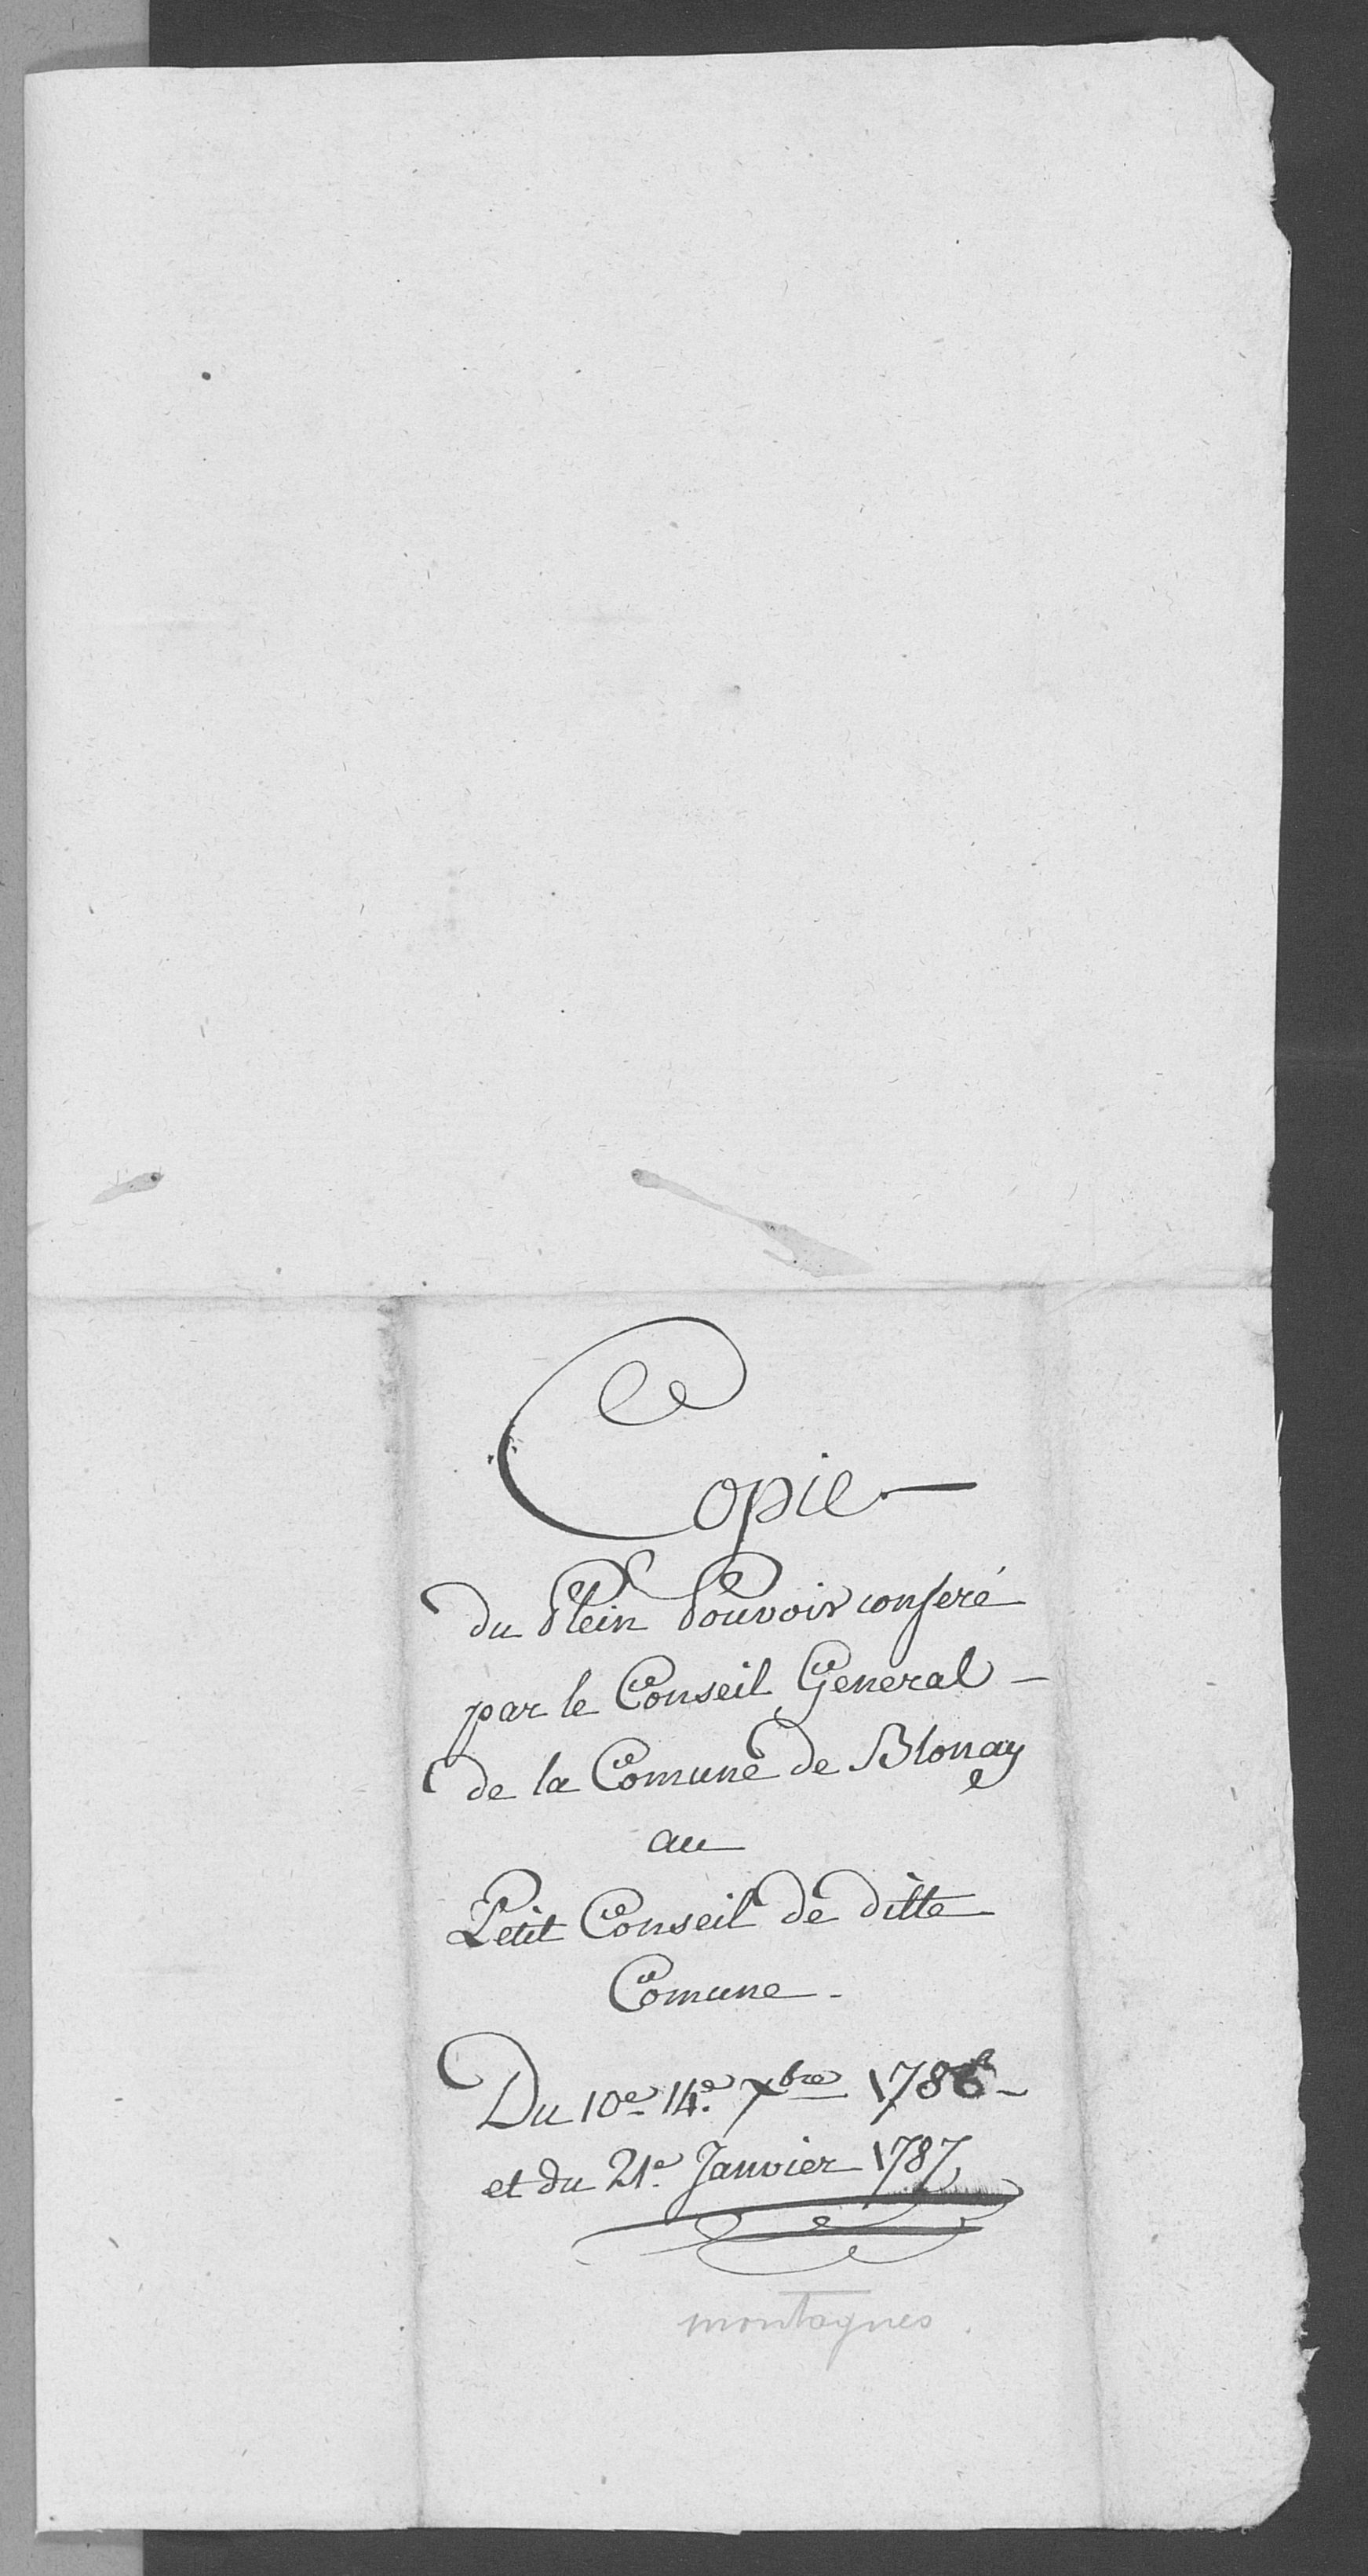 Copie
du Plein Pouvoir conferé
par le Conseil General
de la Comune de Blonay
au
Petit Conseil de ditte
Comune.
Du 10e. 14e. xbre 1786
et du 21e. Janvier 1787
montagnes.